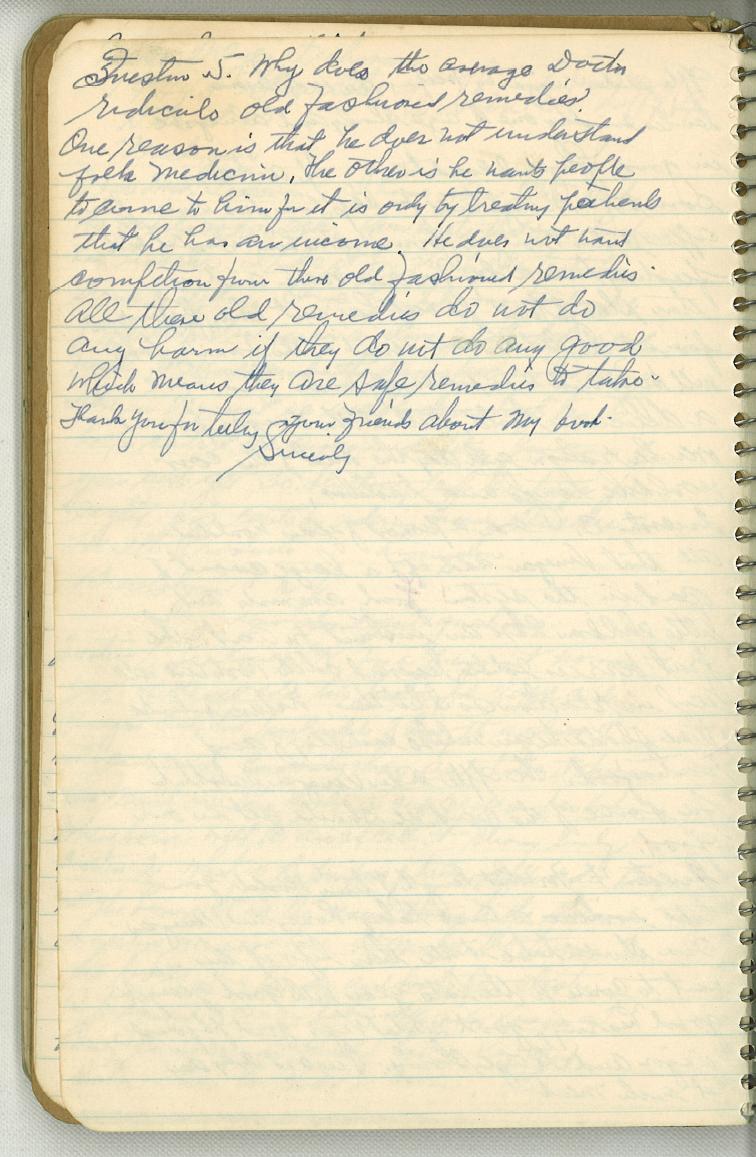 Question 5. Why does the average Doctor
rediculo old fashioned remedies?
One reason is that he does not understand
folk medicin. The other is he wants people
to come to him for it is only by treating patients
that he has an income. He does not want
compition from these old fashioned remedis.
All these old remedis do not do
any harm if they do not do any good
which means they are safe remedis to take.
Thank you for telling your friends about my book.
Sincerly